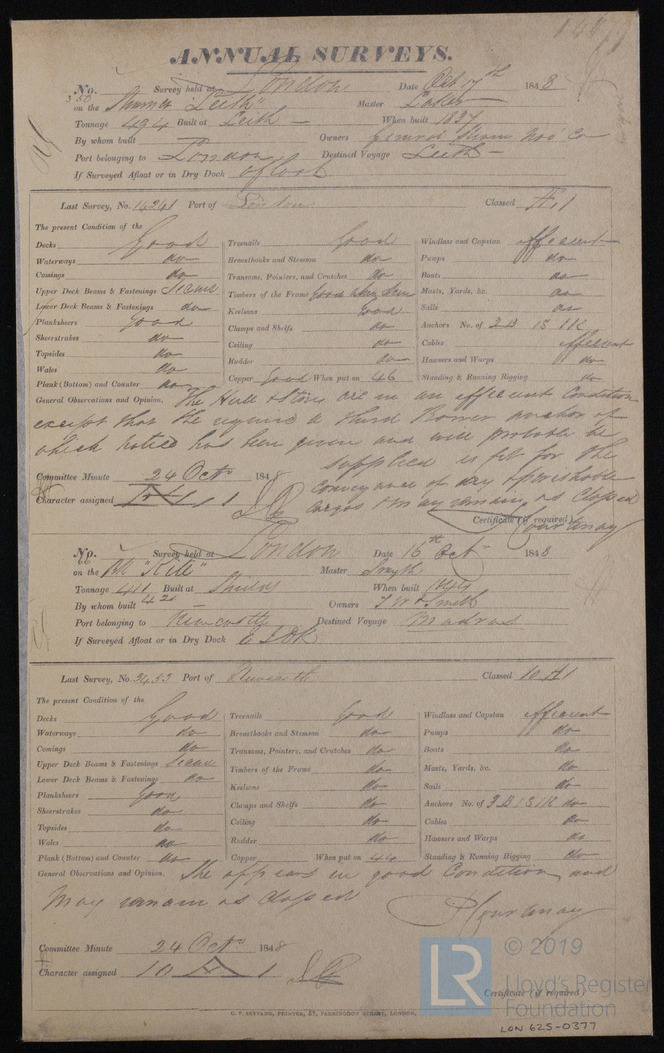 ANNUAL SURVEYS.
No. Survey held at London Date Oct 17th 1848
350 on the Steamer "Leith" Master
Tonnage 494 Built at Leith When built 1837
By whom built Owners General Steam Nav Co
Port belonging to London Destined Voyage Leith
If Surveyed Afloat or in Dry Dock Afloat
Last Survey, No. 14241 Port of London Classed A, 1
The present Condition of the
Decks Good
Waterways do
Comings do
Upper Deck Beams & Fastenings Seams
Lower Deck Beams & Fastenings do
Planksheers Good
Sheerstrakes do
Topsides do
Wales do
Plank (Bottom) and Counter do
Treenails Good
Breasthooks and Stemson do
Transoms, Pointers, and Crutches do
Timbers of the Frame Good when seen
Keelsons Good
Clamps and Shelfs do
Ceiling do
Rudder do
Copper Good When put on 46
Windlass and Capstan efficient
Pumps do
Boats do
Masts, Yards, &c. do
Sails do
Anchors No. of 2 B 1 S 1 K
Cables efficient
Hawsers and Warps do
Standing & Running Rigging do
General Observations and Opinion. The Hull & Stores are in an efficient Condition
except that she requires a third Bower anchor of
which notice has been given and will probable be
supplied is fit for the
conveyance of dry & perishable
cargos & may remain as Classed
Committee Minute 24 Octr 1848
Character assigned A 1
Certificate (if required)
No. Survey held at London Date 16th Oct 1848
66 on the Bk "Kite" Master Smyth
Tonnage 411 Built at Shields When built
By whom built 421 Owners T W Smith
Port belonging to Newcastle Destined Voyage Madras
If Surveyed Afloat or in Dry Dock
Last Survey, No. 3453 Port of Newcastle Classed 10 A 1
The present Condition of the
Decks Good
Waterways do
Comings do
Upper Deck Beams & Fastenings Seams
Lower Deck Beams & Fastenings do
Planksheers Good
Sheerstrakes do
Topsides do
Wales do
Plank (Bottom) and Counter do
Treenails Good
Breasthooks and Stemson do
Transoms, Pointers, and Crutches do
Timbers of the Frame do
Keelsons do
Clamps and Shelfs do
Ceiling do
Rudder do
Copper When put on 44
Windlass and Capstan efficient
Pumps do
Boats do
Masts, Yards, &c. do
Sails do
Anchors No. of 3 B 1 S 1 K do
Cables do
Hawsers and Warps do
Standing & Running Rigging do
General Observations and Opinion. She appears in good Condition and
may remain as Classed
Committee Minute 24 Octr 1848
Character assigned 10 A 1
Certificate (if required)
LR © 2019
Lloyd's Register
Foundation
LON 625-0377